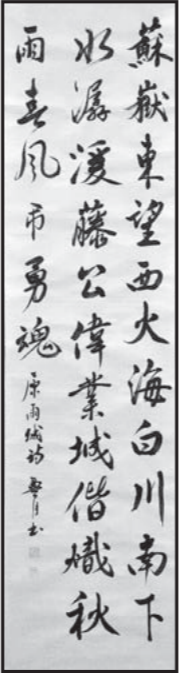 蘇嶽東望西火海白川南下
水潺湲藤公偉業城偕熾秋
雨春風弔勇魂
原雨城詩